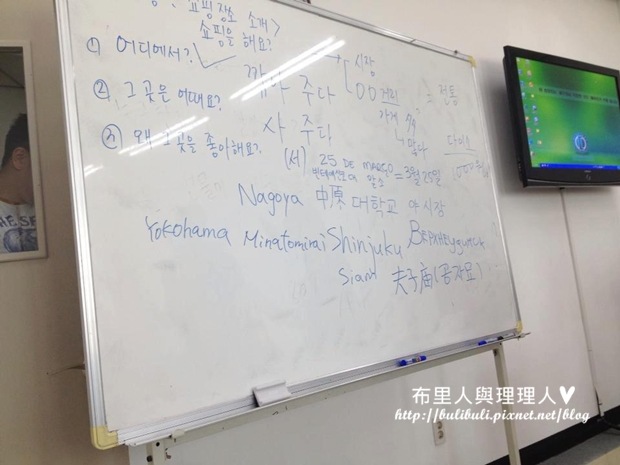 쇼핑장소 소개>
① 어디에서? 쇼핑을 해요?
→ 시장
깎아 주다
○○ 거리 = 전통
② 그곳은 어때요?
가게
많다
사 주다
③ 왜 그곳을 좋아해요?
(서) 25 DE MARÇO = 3월 25일
Nagoya 中原 대학교 야시장
Yokohama Minatomirai Shinjuku
Siam 夫子庙(공자묘)
布里人與理理人♥
http://bulibuli.pixnet.net/blog